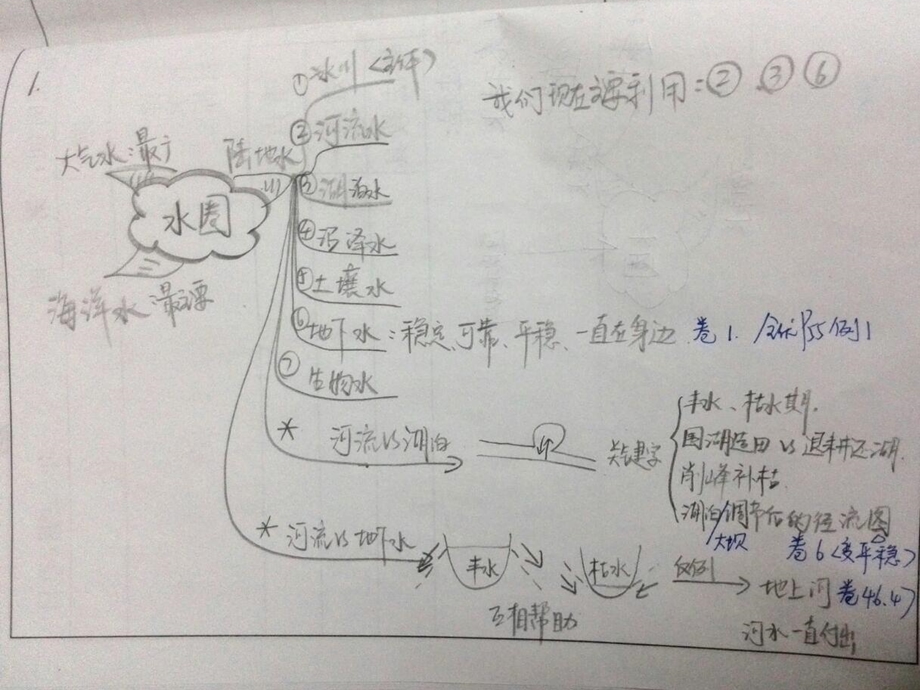 1.
①冰川〈主体〉
我们现在主要利用:②.③⑥
大气水:最广
陆地水
②河流水
水圈
③湖泊水
④沼泽水
海洋水:最主要
⑤土壤水
⑥地下水:稳定、可靠、平稳、一直在身边 卷1. P55例1
⑦生物水
* 河流vs湖泊
关键字
丰水、枯水期.
围湖造田vs退耕还湖.
削峰补枯.
湖泊调节后的径流图
大坝
卷6〈变平稳〉
* 河流vs地下水
丰水
枯水
互相帮助
反例
地上河 卷46.47
河水一直付出